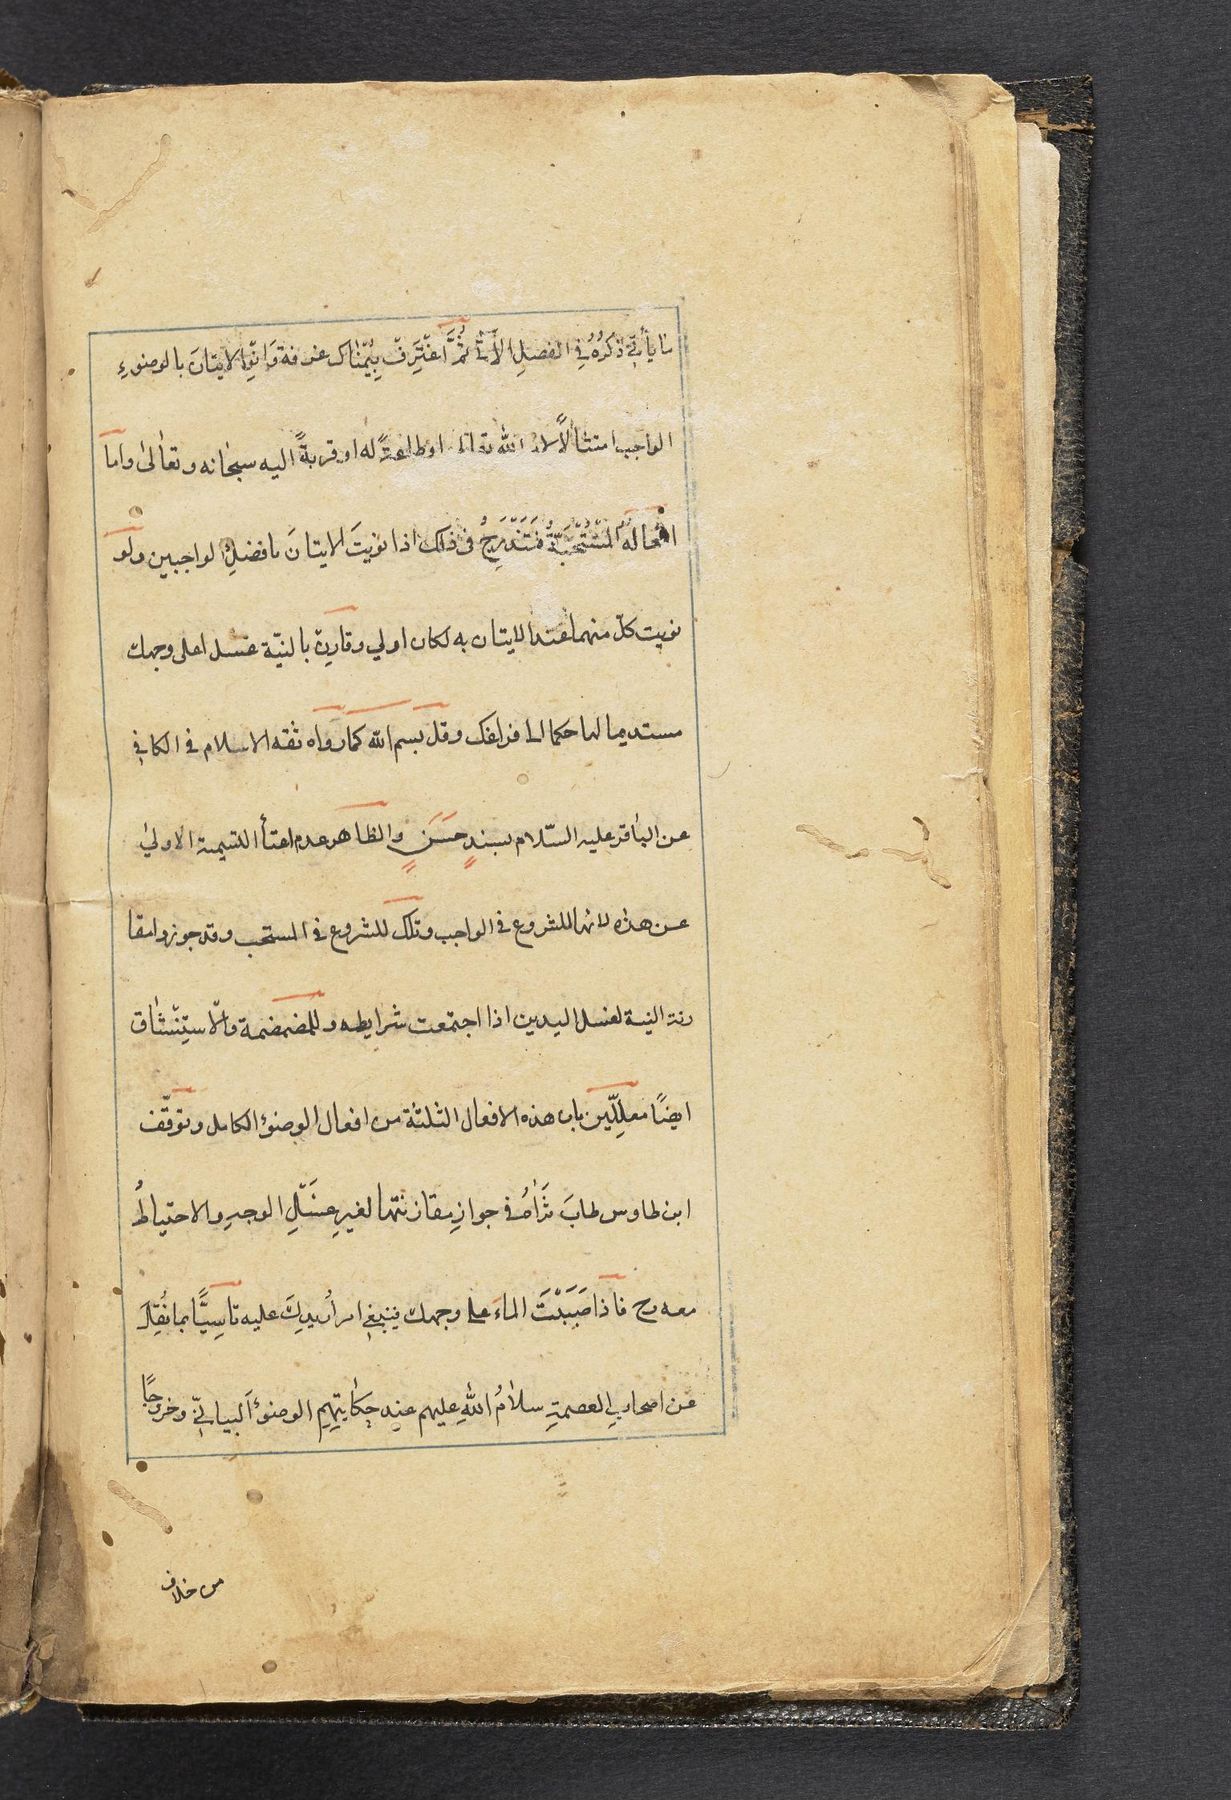 ما يأتي ذكرُهُ في الفصلِ الآتي ثُمَّ اغْتَرِفْ بِيُمْنٰاك غرفة وَانْوِ الايتانَ بالوضوءِ
الواجب امتثالاً لامر الله تعالى او طاعةً له او قربةً اليه سبحٰانه وتعٰالىٰ واما
افعاله المُسْتَحَبَّةُ فَتَنْدَرِجُ في ذلك اذا نويتَ الايتانَ بافضلِ الواجبين ولو
نويت كلّ منهما عند الايتان به لكان اولي وقارِنْ بالنيّة غسل اعلى وجهك
مستديما لها حكما الى فراغك وقل بسم الله كما رواه ثقه الاسلام في الكافي
عن البٰاقر عليه السّلام بسندٍ حسَنٍ والظاهر عدم اغنأ التسمية الاوليٰ
عن هذه لانها للشروع في الواجب وتلك للشروع في المستحب وقد جوزوا مقا
رنة النية لغسل اليدين اذا اجتمعت شرايطه وللمضمضة والاستِنْشٰاق
ايضًا معلِّلين بان هذه الافعال الثلثة من افعال الوضوء الكامل وتوقّف
ابن طاوس طابَ ثَرٰاهُ في جوازِ مقارنتها لغيرِ غَسْلِ الوجهِ والاحتياطُ
معه رح فاذا صَبَبْتَ الماءَ على وجهك فينبغي امرارُ يدِكَ عليه تاسِيًّا بما نُقِلَ
عن اصحابِ العصمةِ سلامُ اللهِ عليهم عند حِكٰايتِهِم الوضوءَ البيانيّ وخروجًا
من خلاف